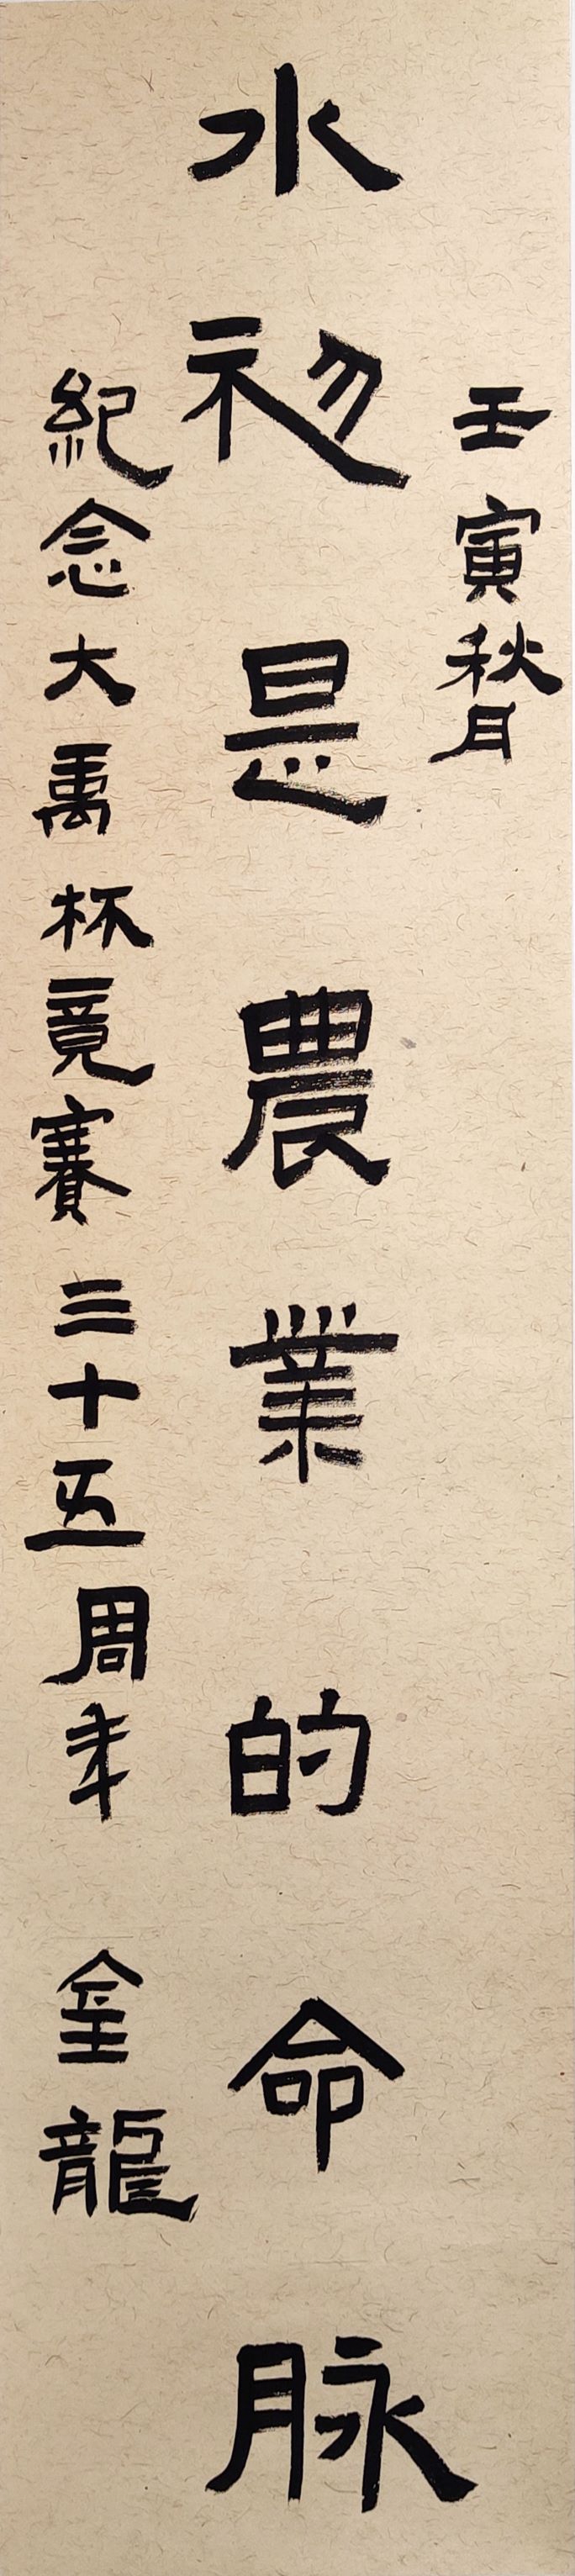 壬寅秋月
水利是農業的命脉
紀念大禹杯竟賽三十五周年 金龍